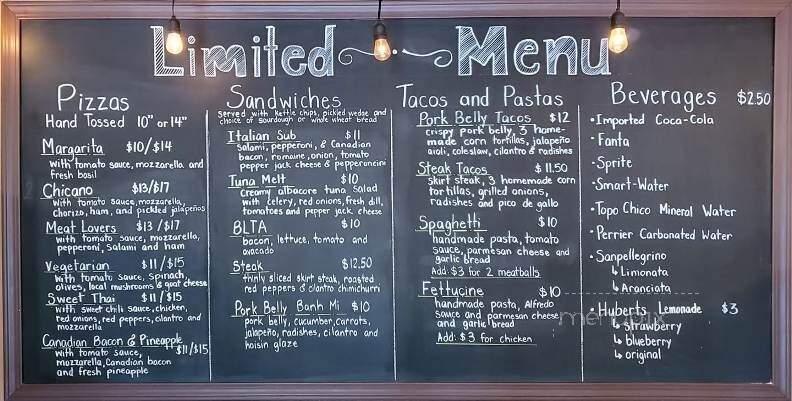 Limited Menu
Pizzas
Hand Tossed 10" or 14"
Margarita $10/$14
with tomato sauce, mozzarella and
fresh basil
Chicano $13/$17
with tomato sauce, mozzarella,
chorizo, ham, and pickled jalapeños
Meat Lovers $13/$17
with tomato sauce, mozzarella,
pepperoni, salami and ham
Vegetarian $11/$15
with tomato sauce, spinach,
olives, local mushrooms & goat cheese
Sweet Thai $11/$15
with sweet chili sauce, chicken,
red onions, red peppers, cilantro and
mozzarella
Canadian Bacon & Pineapple
with tomato sauce, $11/$15
mozzarella, Canadian bacon
and fresh pineapple
Sandwiches
Served with kettle chips, pickled wedge and
choice of sourdough or whole wheat bread
Italian Sub $11
Salami, pepperoni, & Canadian
bacon, romaine, onion, tomato
pepper jack cheese & pepperoncini
Tuna Melt $10
Creamy albacore tuna salad
with celery, red onions, fresh dill,
tomatoes and pepper jack cheese
BLTA $10
bacon, lettuce, tomato and
avocado
Steak $12.50
thinly sliced skirt steak, roasted
red peppers & cilantro chimichurri
Pork Belly Banh Mi $10
pork belly, cucumber, carrots,
jalapeño, radishes, cilantro and
hoisin glaze
Tacos and Pastas
Pork Belly Tacos $12
crispy pork belly, 3 home-
made corn tortillas, jalapeño
aioli, coleslaw, cilantro & radishes
Steak Tacos $11.50
skirt steak, 3 homemade corn
tortillas, grilled onions,
radishes and pico de gallo
Spaghetti $10
handmade pasta, tomato
sauce, parmesan cheese and
garlic bread
Add: $3 for 2 meatballs
Fettucine $10
handmade pasta, Alfredo
sauce and parmesan cheese
and garlic bread
Add: $3 for chicken
Beverages $2.50
• Imported Coca-Cola
• Fanta
• Sprite
• Smart-Water
• Topo Chico Mineral Water
• Perrier Carbonated Water
• Sanpellegrino
↳ Limonata
↳ Aranciata
• Huberts Lemonade $3
↳ strawberry
↳ blueberry
↳ original